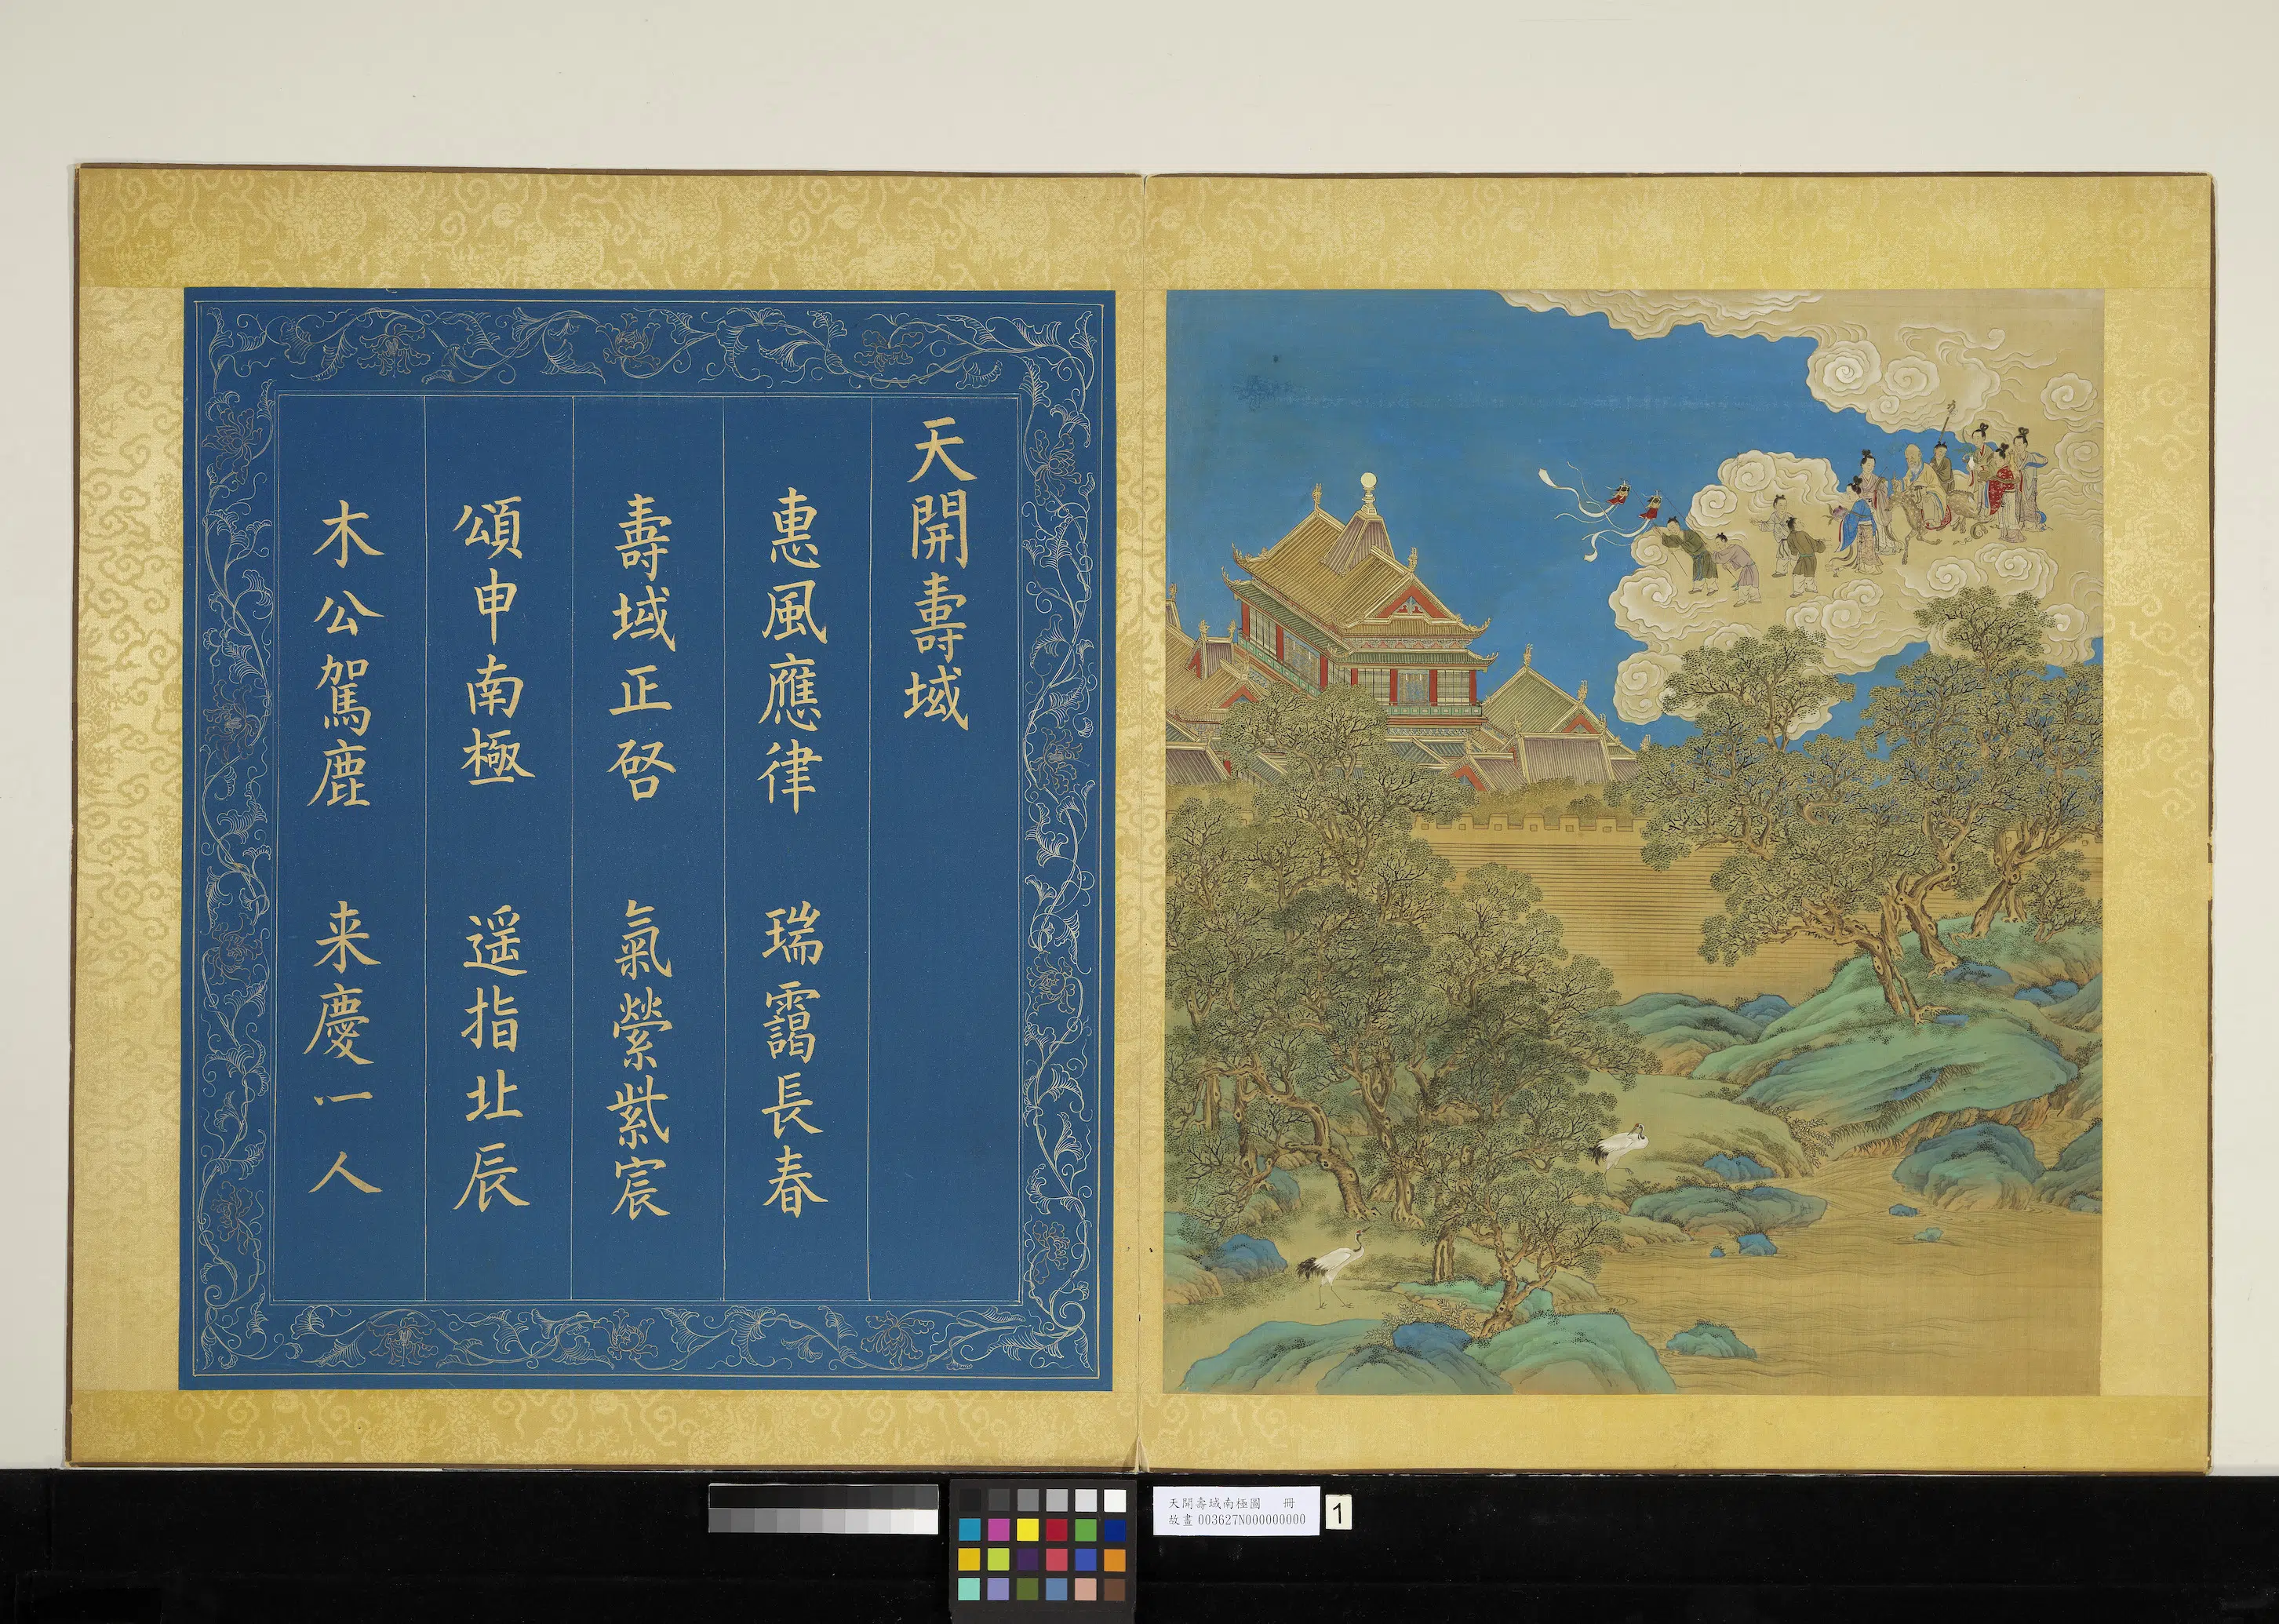 天開壽域
惠風應律 瑞靄長春
壽域正啓 氣縈紫宸
頌申南極 遥指北辰
木公駕鹿 来慶一人
天開壽域南極圖 冊
故畫 003627N000000000
1